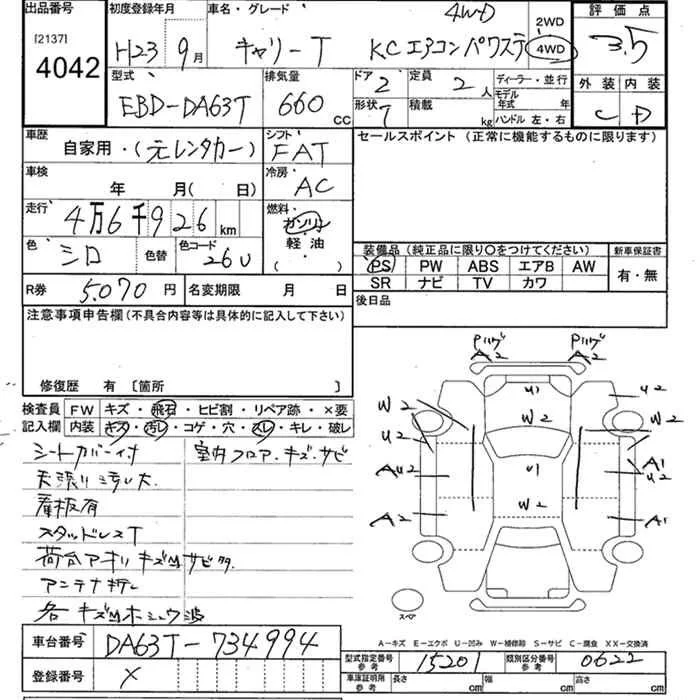 出品番号
[2137]
4042
初度登録年月
H23 9月
車名・グレード
4WD
キャリーT KCエアコンパワステ
2WD
4WD
評価点
3.5
外装 内装
C D
型式
EBD-DA63T
排気量
660 CC
ドア 2
形状 7
定員 2人
積載 kg
ディーラー・並行
モデル年式 年
ハンドル 左・右
車歴
自家用・(元レンタカー)
シフト
FAT
セールスポイント (正常に機能するものに限ります)
車検
年 月( 日)
冷房
AC
走行
4万6千926km
燃料
ガソリン
軽油
・( )
色
シロ
色替
色コード
26U
装備品 (純正品に限り○をつけてください)
PS PW ABS エアB AW
SR ナビ TV カワ
新車保証書
有・無
R券 5.070円
名変期限 月 日
後日品
注意事項申告欄(不具合内容等は具体的に記入して下さい)
修復歴 有 [箇所 ]
検査員 FW キズ・飛石・ヒビ割・リペア跡・×要
記入欄 内装 キズ・汚レ・コゲ・穴・スレ・キレ・破レ
シートカバー付
室内フロア・キズ・サビ
天張リ汚レ大
看板有
スタッドレスT
荷台アオリキズMサビタ
アンテナ折レ
各キズM ホシュウ波
Pハゲ
A2
Pハゲ
A2
U1
U2
W2
W2
W2
U2
AU2
U1
A1
U2
W2
A2
A1
スペア
A-キズ E-エクボ U-凹み W-補修跡 S-サビ C-腐食 XX-交換済
車台番号 DA63T-734994
登録番号 ×
型式指定番号 参考 15201
類別区分番号 参考 0622
車庫証明用 参考 長さ cm 幅 cm 高さ cm